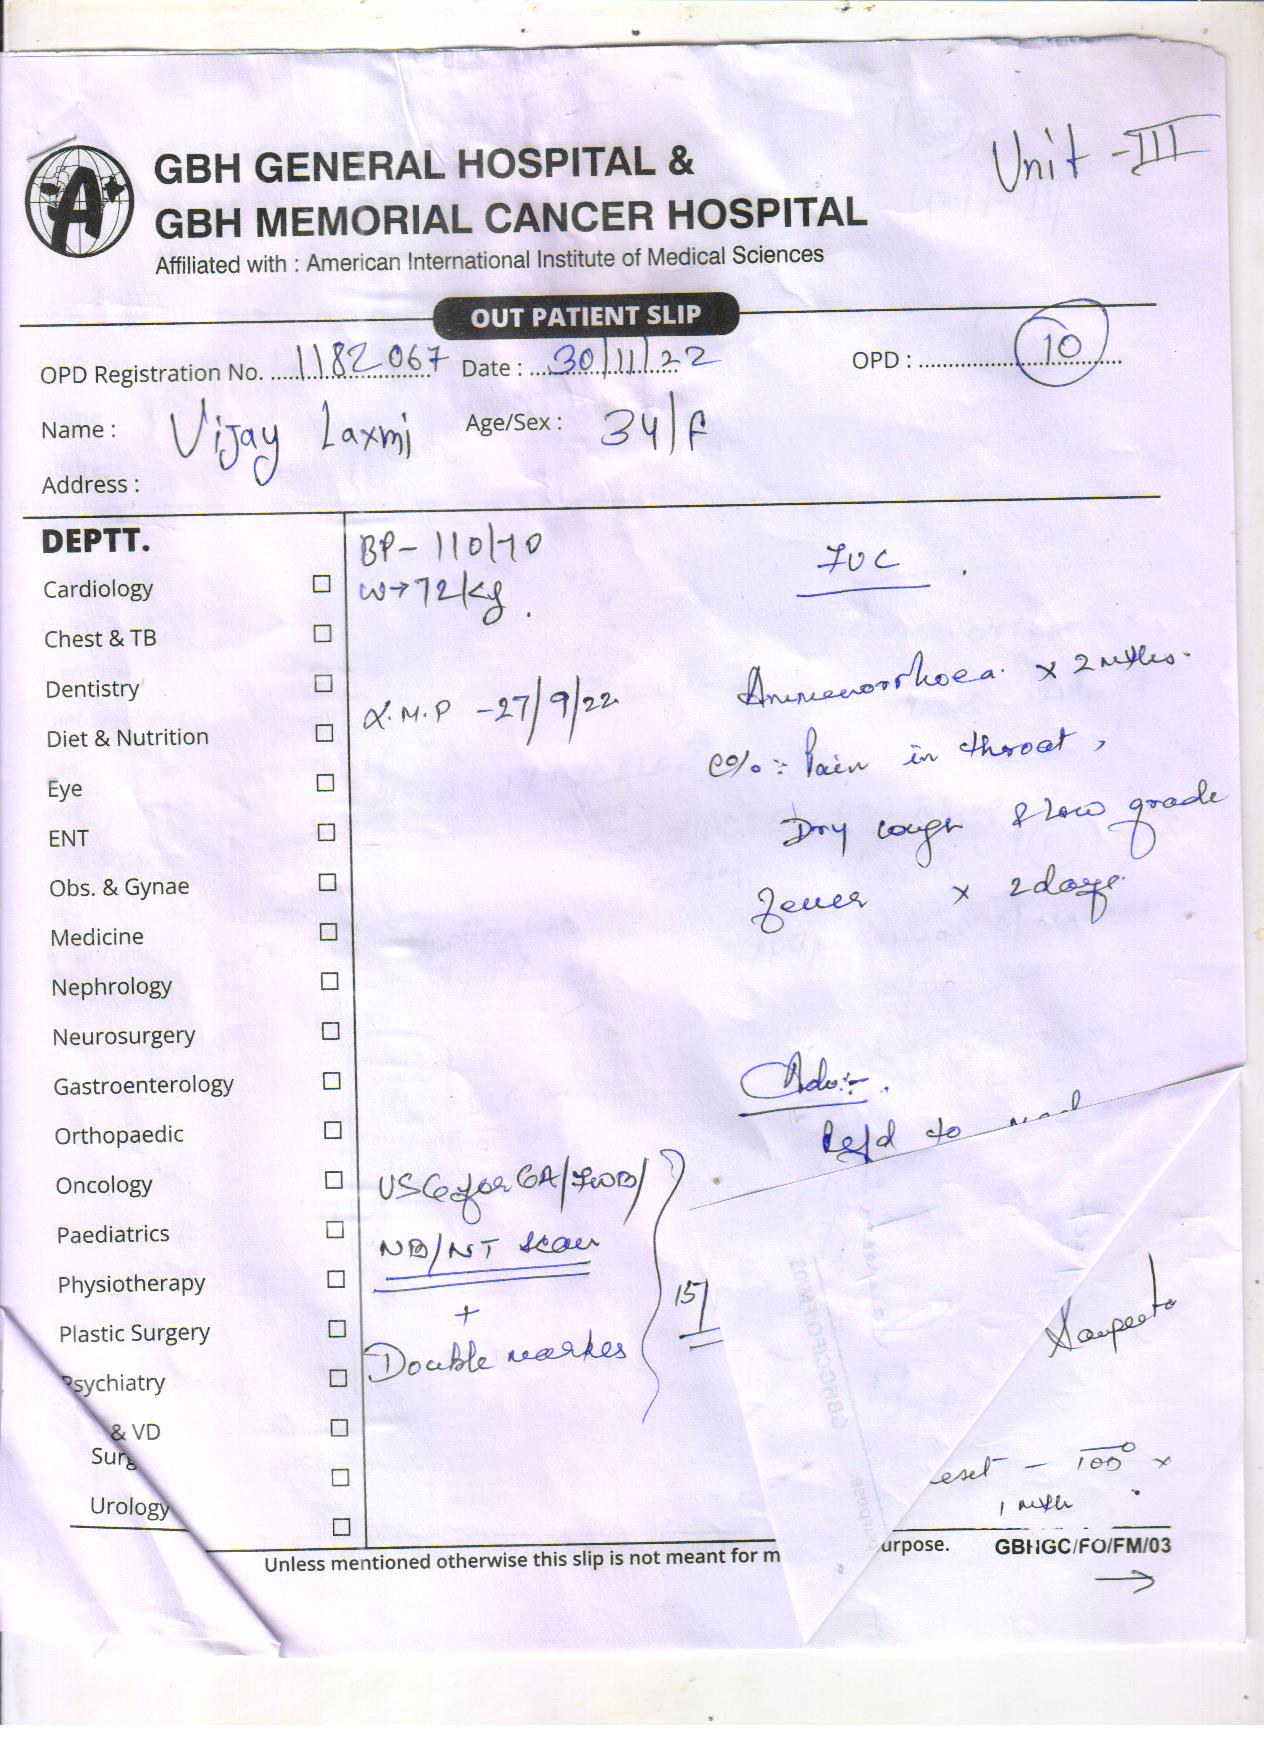 Unit - III
GBH GENERAL HOSPITAL &
GBH MEMORIAL CANCER HOSPITAL
Affiliated with : American International Institute of Medical Sciences
OUT PATIENT SLIP
OPD Registration No. 1182067 Date : 30/11/22 OPD : 10
Name : Vijay Laxmi Age/Sex : 34/F
Address :
DEPTT.
Cardiology
Chest & TB
Dentistry
Diet & Nutrition
Eye
ENT
Obs. & Gynae
Medicine
Nephrology
Neurosurgery
Gastroenterology
Orthopaedic
Oncology
Paediatrics
Physiotherapy
Plastic Surgery
sychiatry
& VD
Surg
Urology
BP- 110/70
W→72kg.
L.M.P -27/9/22
USG for GA/FWB/
NB/NT scan
+
Double marker
15/
Ammenorrhoea. x 2 mths.
c/o :- Pain in throat,
Dry cough & low grade
fever x 2 days.
Adv:-
Refd to
eset - 100 x
1 mth
Unless mentioned otherwise this slip is not meant for m urpose. GBHGC/FO/FM/03
→